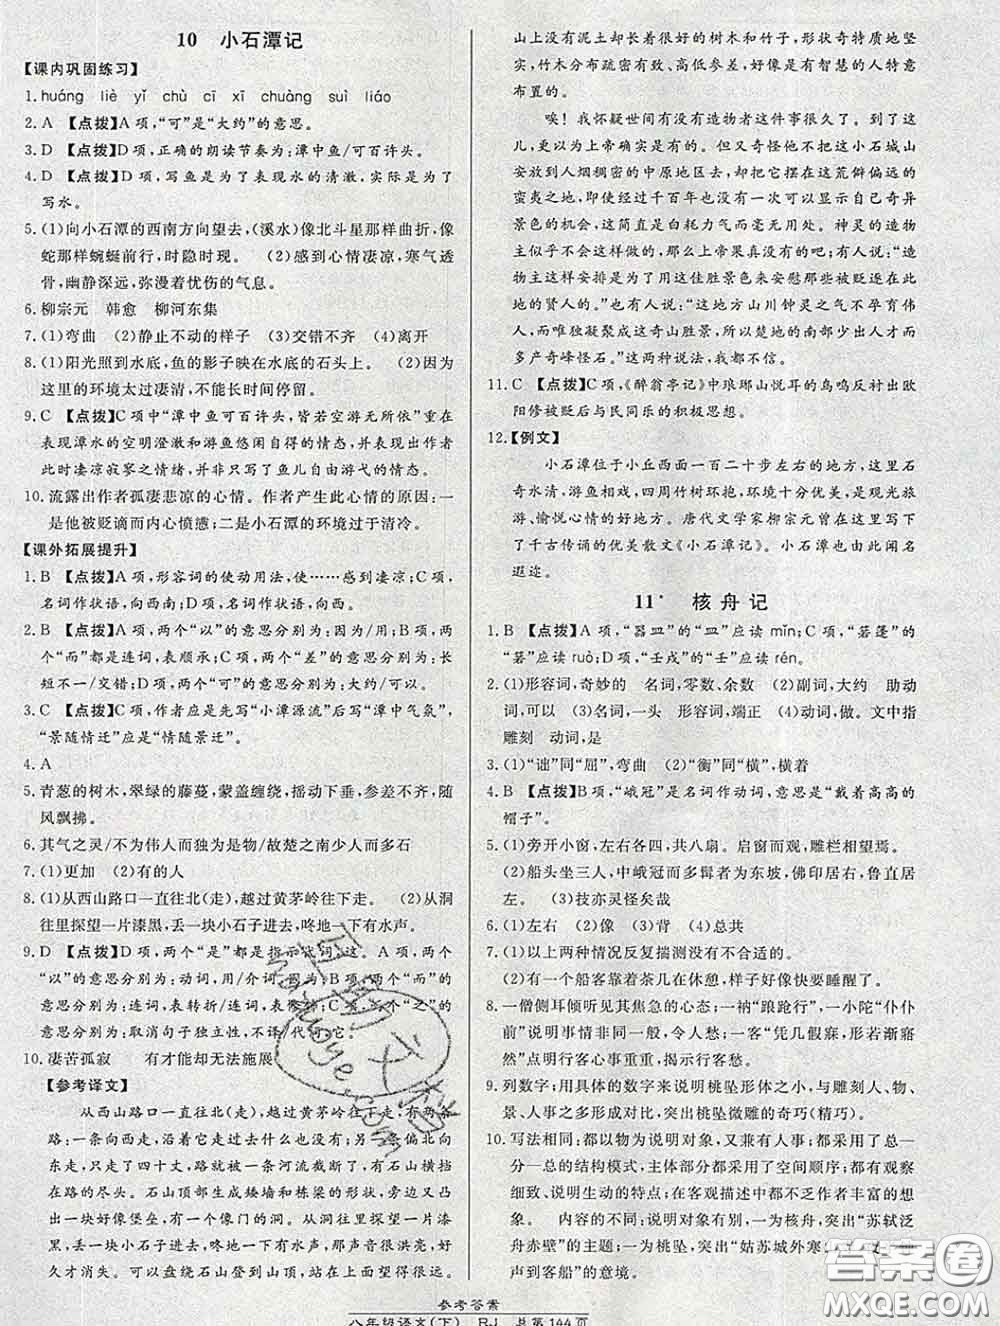 10　小石潭记
【课内巩固练习】
1. huáng　liè　yǐ　chù　cī　xī　chuàng　suì　liáo
2. A　【点拨】A项,“可”是“大约”的意思。
3. D　【点拨】D项,正确的朗读节奏为:潭中鱼/可百许头。
4. D　【点拨】D项,写鱼是为了表现水的清澈,实际是为了
写水。
5. (1)向小石潭的西南方向望去,(溪水)像北斗星那样曲折,像
蛇那样蜿蜒前行,时隐时现。　(2)感到心情凄凉,寒气
透骨,幽静深远,弥漫着忧伤的气息。
6. 柳宗元　韩愈　柳河东集
7. (1)弯曲　(2)静止不动的样子　(3)交错不齐　(4)离开
8. (1)阳光照到水底,鱼的影子映在水底的石头上。　(2)因为
这里的环境太过凄清,不能长时间停留。
9. C　【点拨】C项中“潭中鱼可百许头,皆若空游无所依”重在
表现潭水的空明澄澈和游鱼悠闲自得的情态,并没有写出作者
此时凄凉寂寥之情绪,并非只写了鱼儿自由游弋的情态。
10. 流露出作者孤凄悲凉的心情。作者产生此心情的原因:一
是他被贬谪而内心愤懑;二是小石潭的环境过于清冷。
【课外拓展提升】
1. B　【点拨】A项,形容词的使动用法,使……感到凄凉;C项,
名词作状语,向西南;D项,名词作状语,在西面。
2. B　【点拨】A项,两个“以”的意思分别为:因为/用;B项,两
个“而”都是连词,表顺承;C项,两个“差”的意思分别为:长
短不一/交错;D项,两个“可”的意思分别为:大约/可以。
3. C　【点拨】C项,作者应是先写“小潭源流”后写“潭中气氛”,
“景随情迁”应是“情随景迁”。
4. A
5. 青葱的树木,翠绿的藤蔓,蒙盖缠绕,摇动下垂,参差不齐,随
风飘拂。
6. 其气之灵/不为伟人而独为是物/故楚之南少人而多石
7. (1)更加　(2)有的人
8. (1)从西山路口一直往北(走),越过黄茅岭往下走。　(2)从洞
往里探望一片漆黑,丢一块小石子进去,咚地一下有水声。
9. D　【点拨】D项,两个“是”都是指示代词,这。A项,两个
“以”的意思分别为:动词,用/介词,因为;B项,两个“而”的意
思分别为:连词,表转折/连词,表修饰;C项,两个“之”的意
思分别为:取消句子独立性,不译/代词,它。
10. 凄苦孤寂　有才能却无法施展
【参考译文】
从西山路口一直往北(走),越过黄茅岭往下走,有两条
路:一条向西走,沿着它走过去什么也没有;另一条稍偏北向
东走,只走了四十丈,路就被一条河流截断了,有石山横挡
在路的尽头。石山顶部生成矮墙和栋梁的形状,旁边又突出
一块好像堡垒,有一个像门的洞。从洞往里探望一片漆黑,
丢一块小石子进去,咚地一下有水声,那声音很洪亮,好
久才消失。石山可以盘绕着登到山顶,站在上面望得很远。
山上没有泥土却长着很好的树木和竹子,形状奇特质地坚
实,竹木分布疏密有致、高低参差,好像是有智慧的人特意
布置的。
唉!我怀疑世间有没有造物者这件事很久了。到了这
儿,更以为上帝确实是有的。但又奇怪他不把这小石城山
安放到人烟稠密的中原地区去,却把它摆在这荒僻偏远的
蛮夷之地,即使经过千百年也没有一次可以显示自己奇异
景色的机会,这简直是白耗力气而毫无用处。神灵的造物
主似乎不会这样做的,那么上帝果真没有的吧?有人说:“造
物主这样安排是为了用这佳胜景色来安慰那些被贬逐在此
地的贤人的。”也有人说:“这地方山川钟灵之气不孕育伟
人,而唯独凝聚成这奇山胜景,所以楚地的南部少出人才而
多产奇峰怪石。”这两种说法,我都不信。
11. C　【点拨】C项,《醉翁亭记》中琅琊山悦耳的鸟鸣反衬出欧
阳修被贬后与民同乐的积极思想。
12.【例文】
小石潭位于小丘西面一百二十步左右的地方,这里石
奇水清,游鱼相戏,四周竹树环抱,环境十分优美,是观光旅
游、愉悦心情的好地方。唐代文学家柳宗元曾在这里写下
了千古传诵的优美散文《小石潭记》。小石潭也由此闻名
遐迩。
11*　核舟记
1. B　【点拨】A项,“器皿”的“皿”应读 mǐn;C项,“箬篷”的
“箬”应读 ruò;D项,“壬戌”的“壬”应读 rén。
2. (1)形容词,奇妙的　名词,零数、余数　(2)副词,大约　助动
词,可以　(3)名词,一头　形容词,端正　(4)动词,做。文中指
雕刻　动词,是
3. (1)“诎”同“屈”,弯曲　(2)“衡”同“横”,横着
4. B　【点拨】B项,“峨冠”是名词作动词,意思是“戴着高高的
帽子”。
5. (1)旁开小窗,左右各四,共八扇。启窗而观,雕栏相望焉。
(2)船头坐三人,中峨冠而多髯者为东坡,佛印居右,鲁直居
左。　(3)技亦灵怪矣哉
6. (1)左右　(2)像　(3)背　(4)总共
7. (1)以上两种情况反复揣测没有不合适的。
(2)有一个船客靠着茶几在休憩,样子好像快要睡醒了。
8. 一僧侧耳倾听见其焦急的心态;一衲“踉跄行”,一小陀“仆仆
前”说明事情非同一般,令人愁楚;一客“凭几假寐,形若渐寤
然”点明行客心事重重,揭示行客愁。
9. 列数字;用具体的数字来说明桃坠形体之小,与雕刻人、物、
景、事之多形成对比,突出桃坠微雕的奇巧(精巧)。
10. 写法相同:都以物为说明对象,又兼有人事;都采用了总—
分—总的结构模式,主体部分都采用了空间顺序;都有观察
细致、说明生动的特点;在客观描述中都不乏作者丰富的想
象。　内容的不同:说明对象有别,一为核舟,突出“苏轼泛
舟赤壁”的主题;一为桃坠,突出“姑苏城外寒
声到客船”的意境。
参考答案
八年级语文(下)　RJ　总第144页
答案圈
MXQE.COM